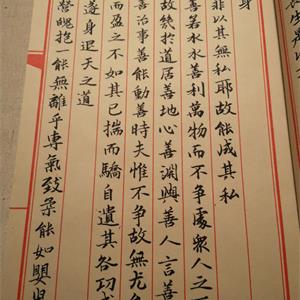 身
非以其無私耶故能成其私
善若水水善利萬物而不爭處眾人之
故幾於道居善地心善淵與善人言善
善治事善能動善時夫惟不爭故無尤
而盈之不如其已揣而驕自遺其咎功成
遂身退天之道
營魄抱一能無離乎專氣致柔能如嬰兒